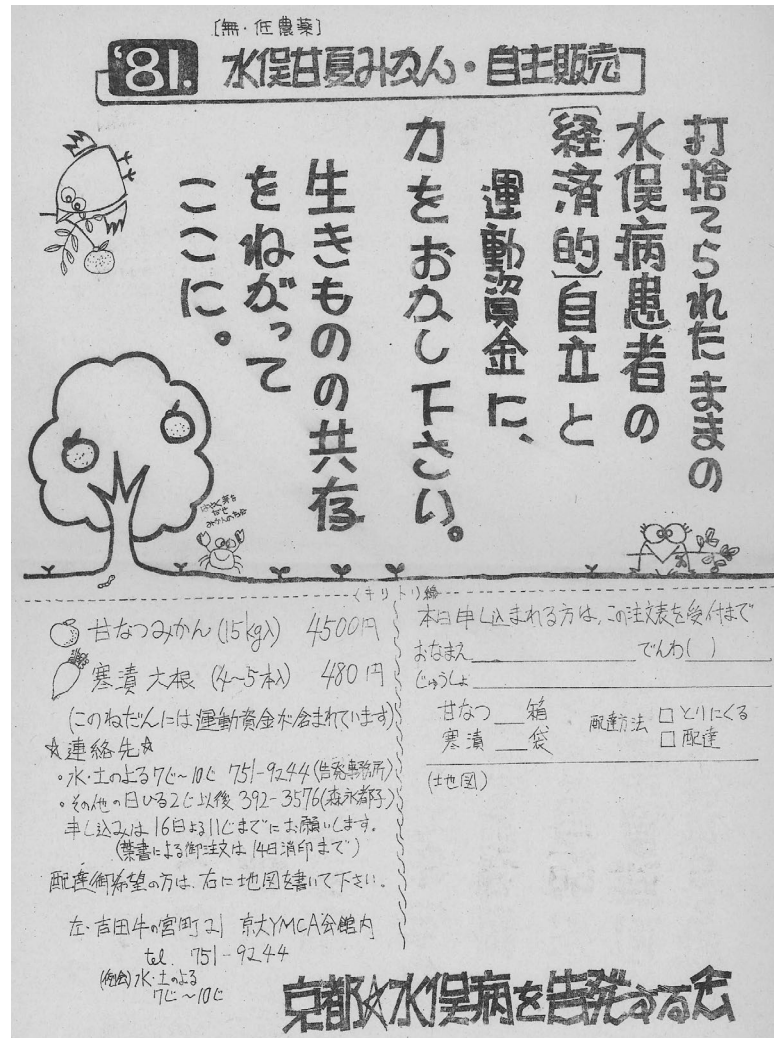 [無・低農薬]
'81. 水俣甘夏みかん・自主販売
打捨てられたままの
水俣病患者の
[経済的]自立と
運動資金に、
力をおかし下さい。
生きものの共存
をねがって
ここに。
キリトリ線
甘なつみかん(15kg入) 4500円
寒漬大根 (4〜5本入) 480円
(このねだんには運動資金が含まれています)
☆連絡先☆
・水・土のよる7じ〜10じ 751-9244(告発事務所)
・その他の日ひる2じ以後 392-3576(森永都子)
申し込みは16日よる11じまでにお願いします。
(葉書による御注文は14日消印まで)
配達御希望の方は、右に地図を書いて下さい。
左・吉田牛の宮町21 京大YMCA会館内
tel. 751-9244
(例会)水・土のよる
7じ〜10じ
本日申し込まれる方は、この注文表を受付まで
おなまえ でんわ( )
じゅうしょ
甘なつ 箱
寒漬 袋
配達方法 □とりにくる
□配達
(地図)
京都☆水俣病を告発する会